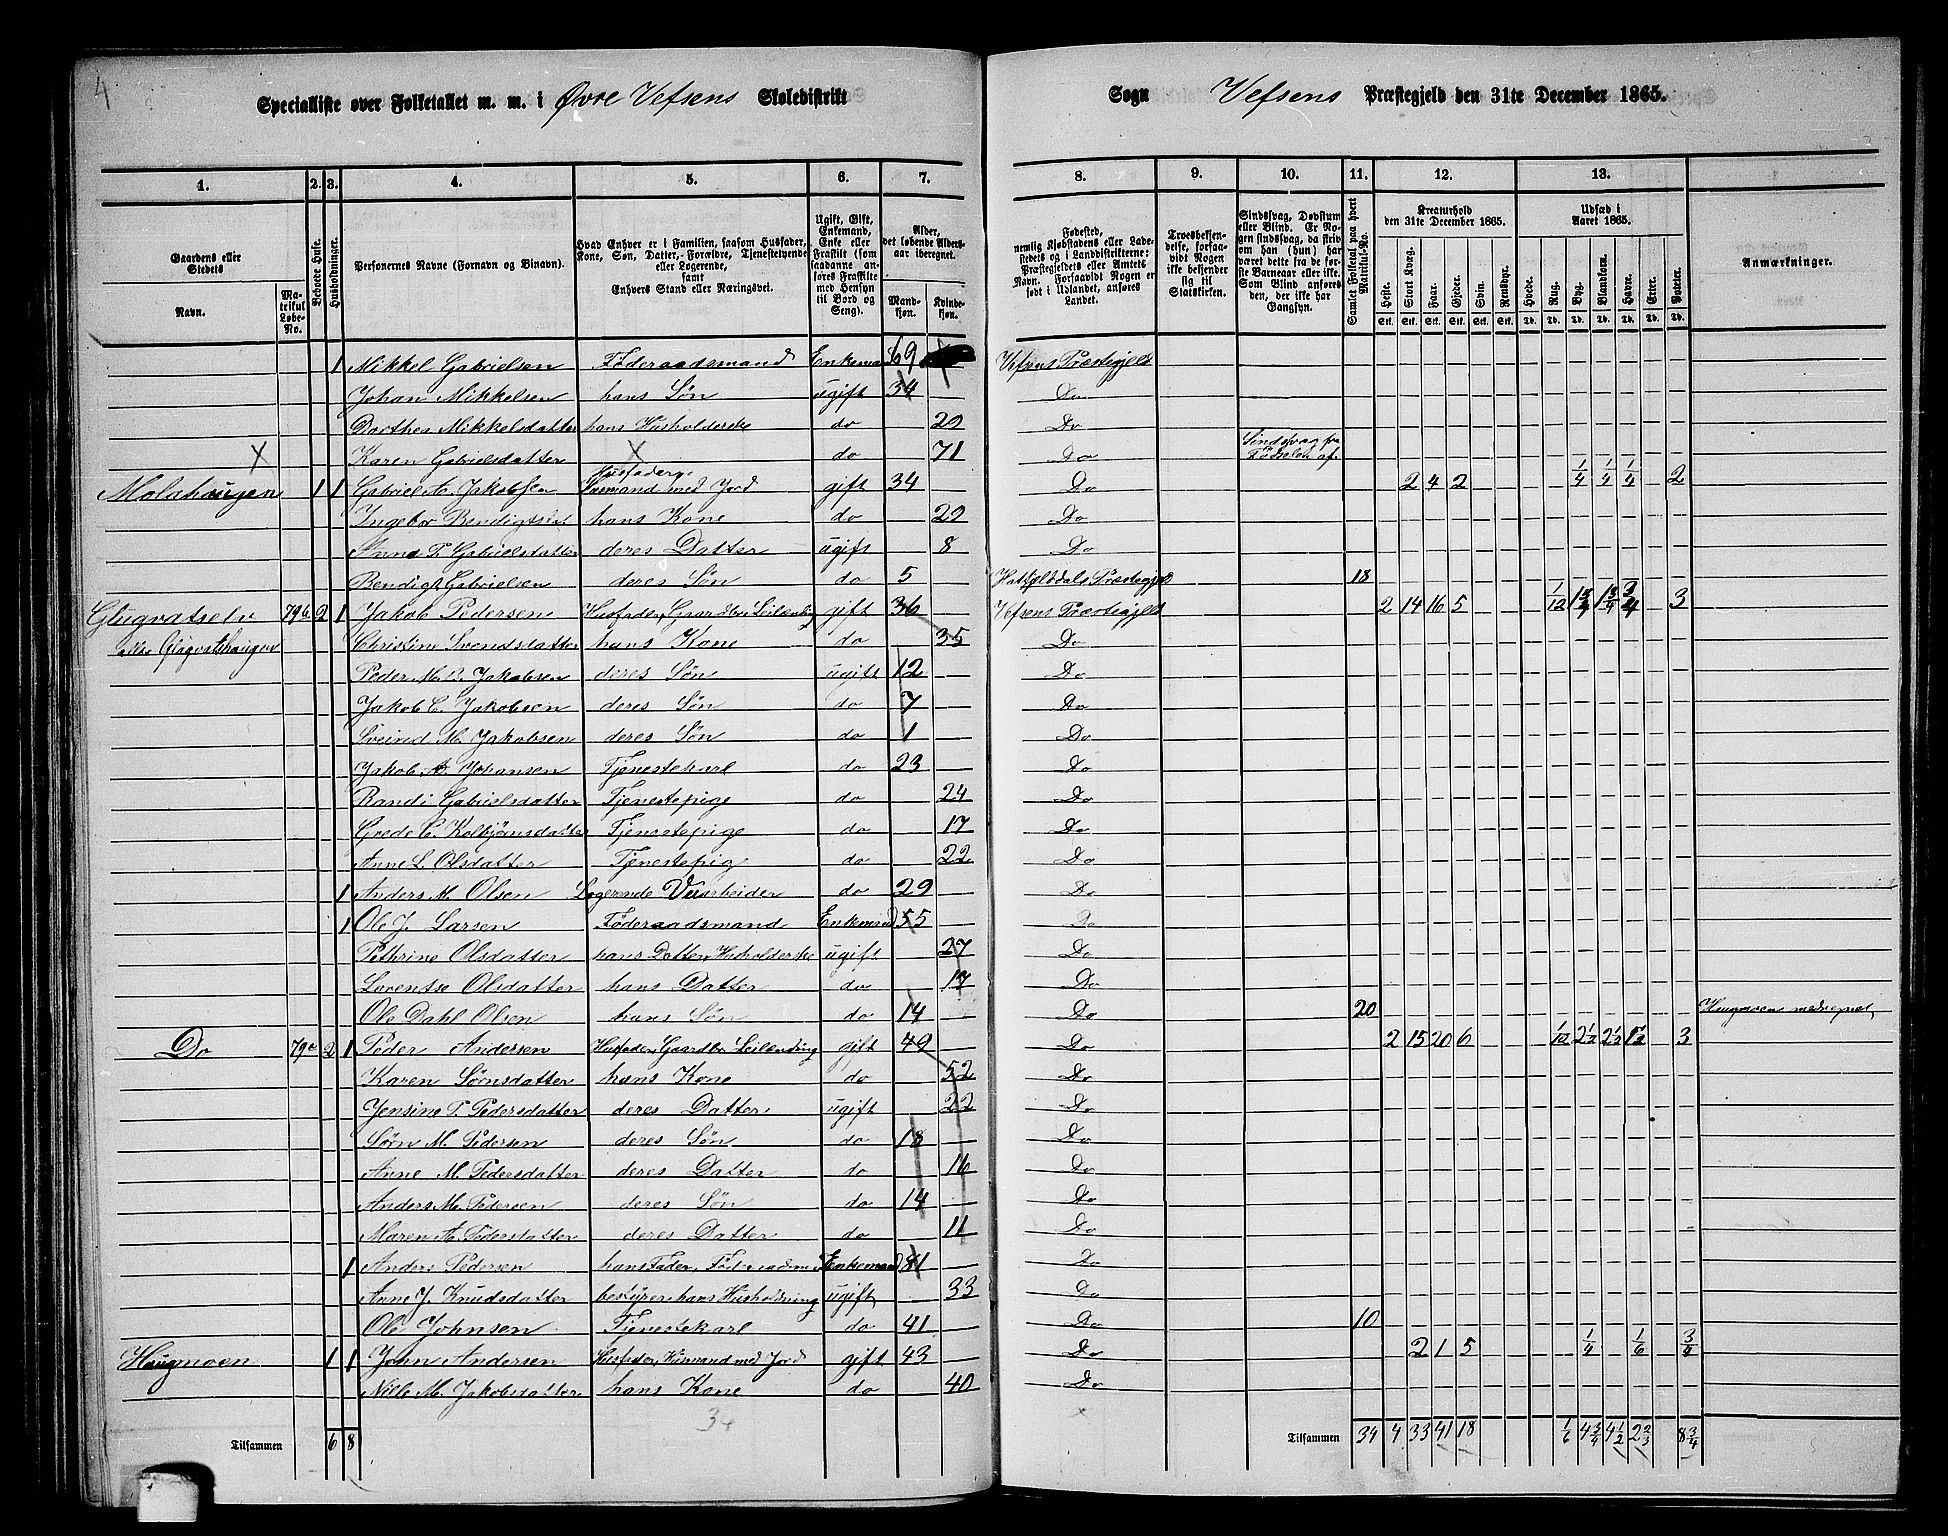 4
Specialliste over Folketallet m. m. i Øvre Vefsens Skoledistrikt
Sogn Vefsens Præstegjeld den 31te December 1865.
1. 2. 3. 4. 5. 6. 7. 8. 9. 10. 11. 12. 13.
Gaardens eller Stedets
Navn. Matrikul Løbe-No.
Beboede Huse.
Husholdninger.
Personernes Navne (Fornavn og Binavn).
Hvad Enhver er i Familien, saasom Husfader, Kone, Søn, Datter, Forældre, Tjenestetyende eller Logerende, samt Enhvers Stand eller Næringsvei.
Ugift, Gift, Enkemand, Enke eller Fraskilt (som saadanne anføres Fraskilte med Hensyn til Bord og Seng).
Alder, det løbende Aldersaar iberegnet.
Mandkjøn. Kvindekjøn.
Fødested, nemlig Kjøbstadens eller Ladestedets og i Landdistrikterne: Præstegjeldets eller Amtets Navn. Forsaavidt Nogen er født i Udlandet, anføres Landet.
Troesbekjendelse, forsaavidt Nogen ikke bekjender sig til Statskirken.
Sindssvag, Døvstum eller Blind. Er Nogen sindssvag, da skrives om han (hun) har været dette fra de første Barneaar eller ikke. Som Blind anføres den, der ikke har Gangsyn.
Samlet Folketal paa hvert Matrikul-No.
Kreaturhold den 31te December 1865.
Heste. Stort Kvæg. Faar. Gjeder. Svin. Rensdyr.
Udsæd i Aaret 1865.
Hvede. Rug. Byg. Blandkorn. Havre. Erter. Poteter.
Anmærkninger.
1 Mikkel Gabrielsen Føderaadsmand Enkemand 69 Vefsens Præstegjeld
Johan Mikkelsen hans Søn ugift 34 Do
Dorthea Mikkelsdatter hans Husholderske do 29 Do
Karen Gabrielsdatter do 71 Do Sindsvag fra Fødselen af.
Molahaugen 1 1 Gabriel A. Jakobsen Husfader, Husmand med Jord gift 34 Do 2 4 2 1/4 1/4 1/4 2
Ingebor Bendigtsdat hans Kone do 29 Do
Anne P. Gabrielsdatter deres Datter ugift 8 Do
Bendigt Gabrielsen deres Søn do 5 Hatfjelddals Præstegjeld 18
Glugvatselv 79b 2 1 Jakob Pedersen Husfader, Gaardbr. Leilænding gift 36 Vefsens Præstegjeld 2 14 16 5 1/12 1 3/4 1 3/4 3/4 3
Christine Svendsdatter hans Kone do 35 Do
Peder M. B. Jakobsen deres Søn ugift 12 Do
Jakob C. Jakobsen deres Søn do 7 Do
Sveind M. Jakobsen deres Søn do 1 Do
Jakob A. Johansen Tjenestekarl do 23 Do
Randi Gabrielsdatter Tjenestepige do 24 Do
Grede C. Kolbjørnsdatter Tjenestepige do 17 Do
Anne L. Olsdatter Tjenestepig do 22 Do
1 Anders M. Olsen Logerende Veiarbeider do 29 Do
1 Ole J. Larsen Føderaadsmand Enkemand 55 Do
Pethrine Olsdatter hans Datter, Husholderske ugift 27 Do
Lorentse Olsdatter hans Datter do 17 Do
Ole Dahl Olsen hans Søn do 14 Do 20
Do 79c 2 1 Peder Andersen Husfader, Gaardbr. Leilænding gift 49 Do 2 15 20 6 1/12 2 1/2 2 1/2 1 1/2 3
Karen Sørnsdatter hans Kone do 52 Do
Jensine P. Pedersdatter deres Datter ugift 22 Do
Sørn M. Pedersen deres Søn do 18 Do
Anne M. Pedersdatter deres Datter do 16 Do
Anders M. Pedersen deres Søn do 14 Do
Maren A. Pedersdatter deres Datter do 11 Do
1 Anders Pedersen hans Fader, Enkemand 81 Do
Anne J. Knudsdatter bestyrer hans Husholdning ugift 33 Do
Ole Johnsen Tjenestekarl do 41 Do 10
Haugmoen 1 1 John Andersen Husfader, Husmand med Jord gift 43 Do 2 1 5 1/4 1/6 3/4
Nille M. Jakobsdatter hans Kone do 40 Do
34
Tilsammen 6 8
Tilsammen 34 4 33 41 18 1/6 4 3/4 4 1/2 2 2/3 8 3/4